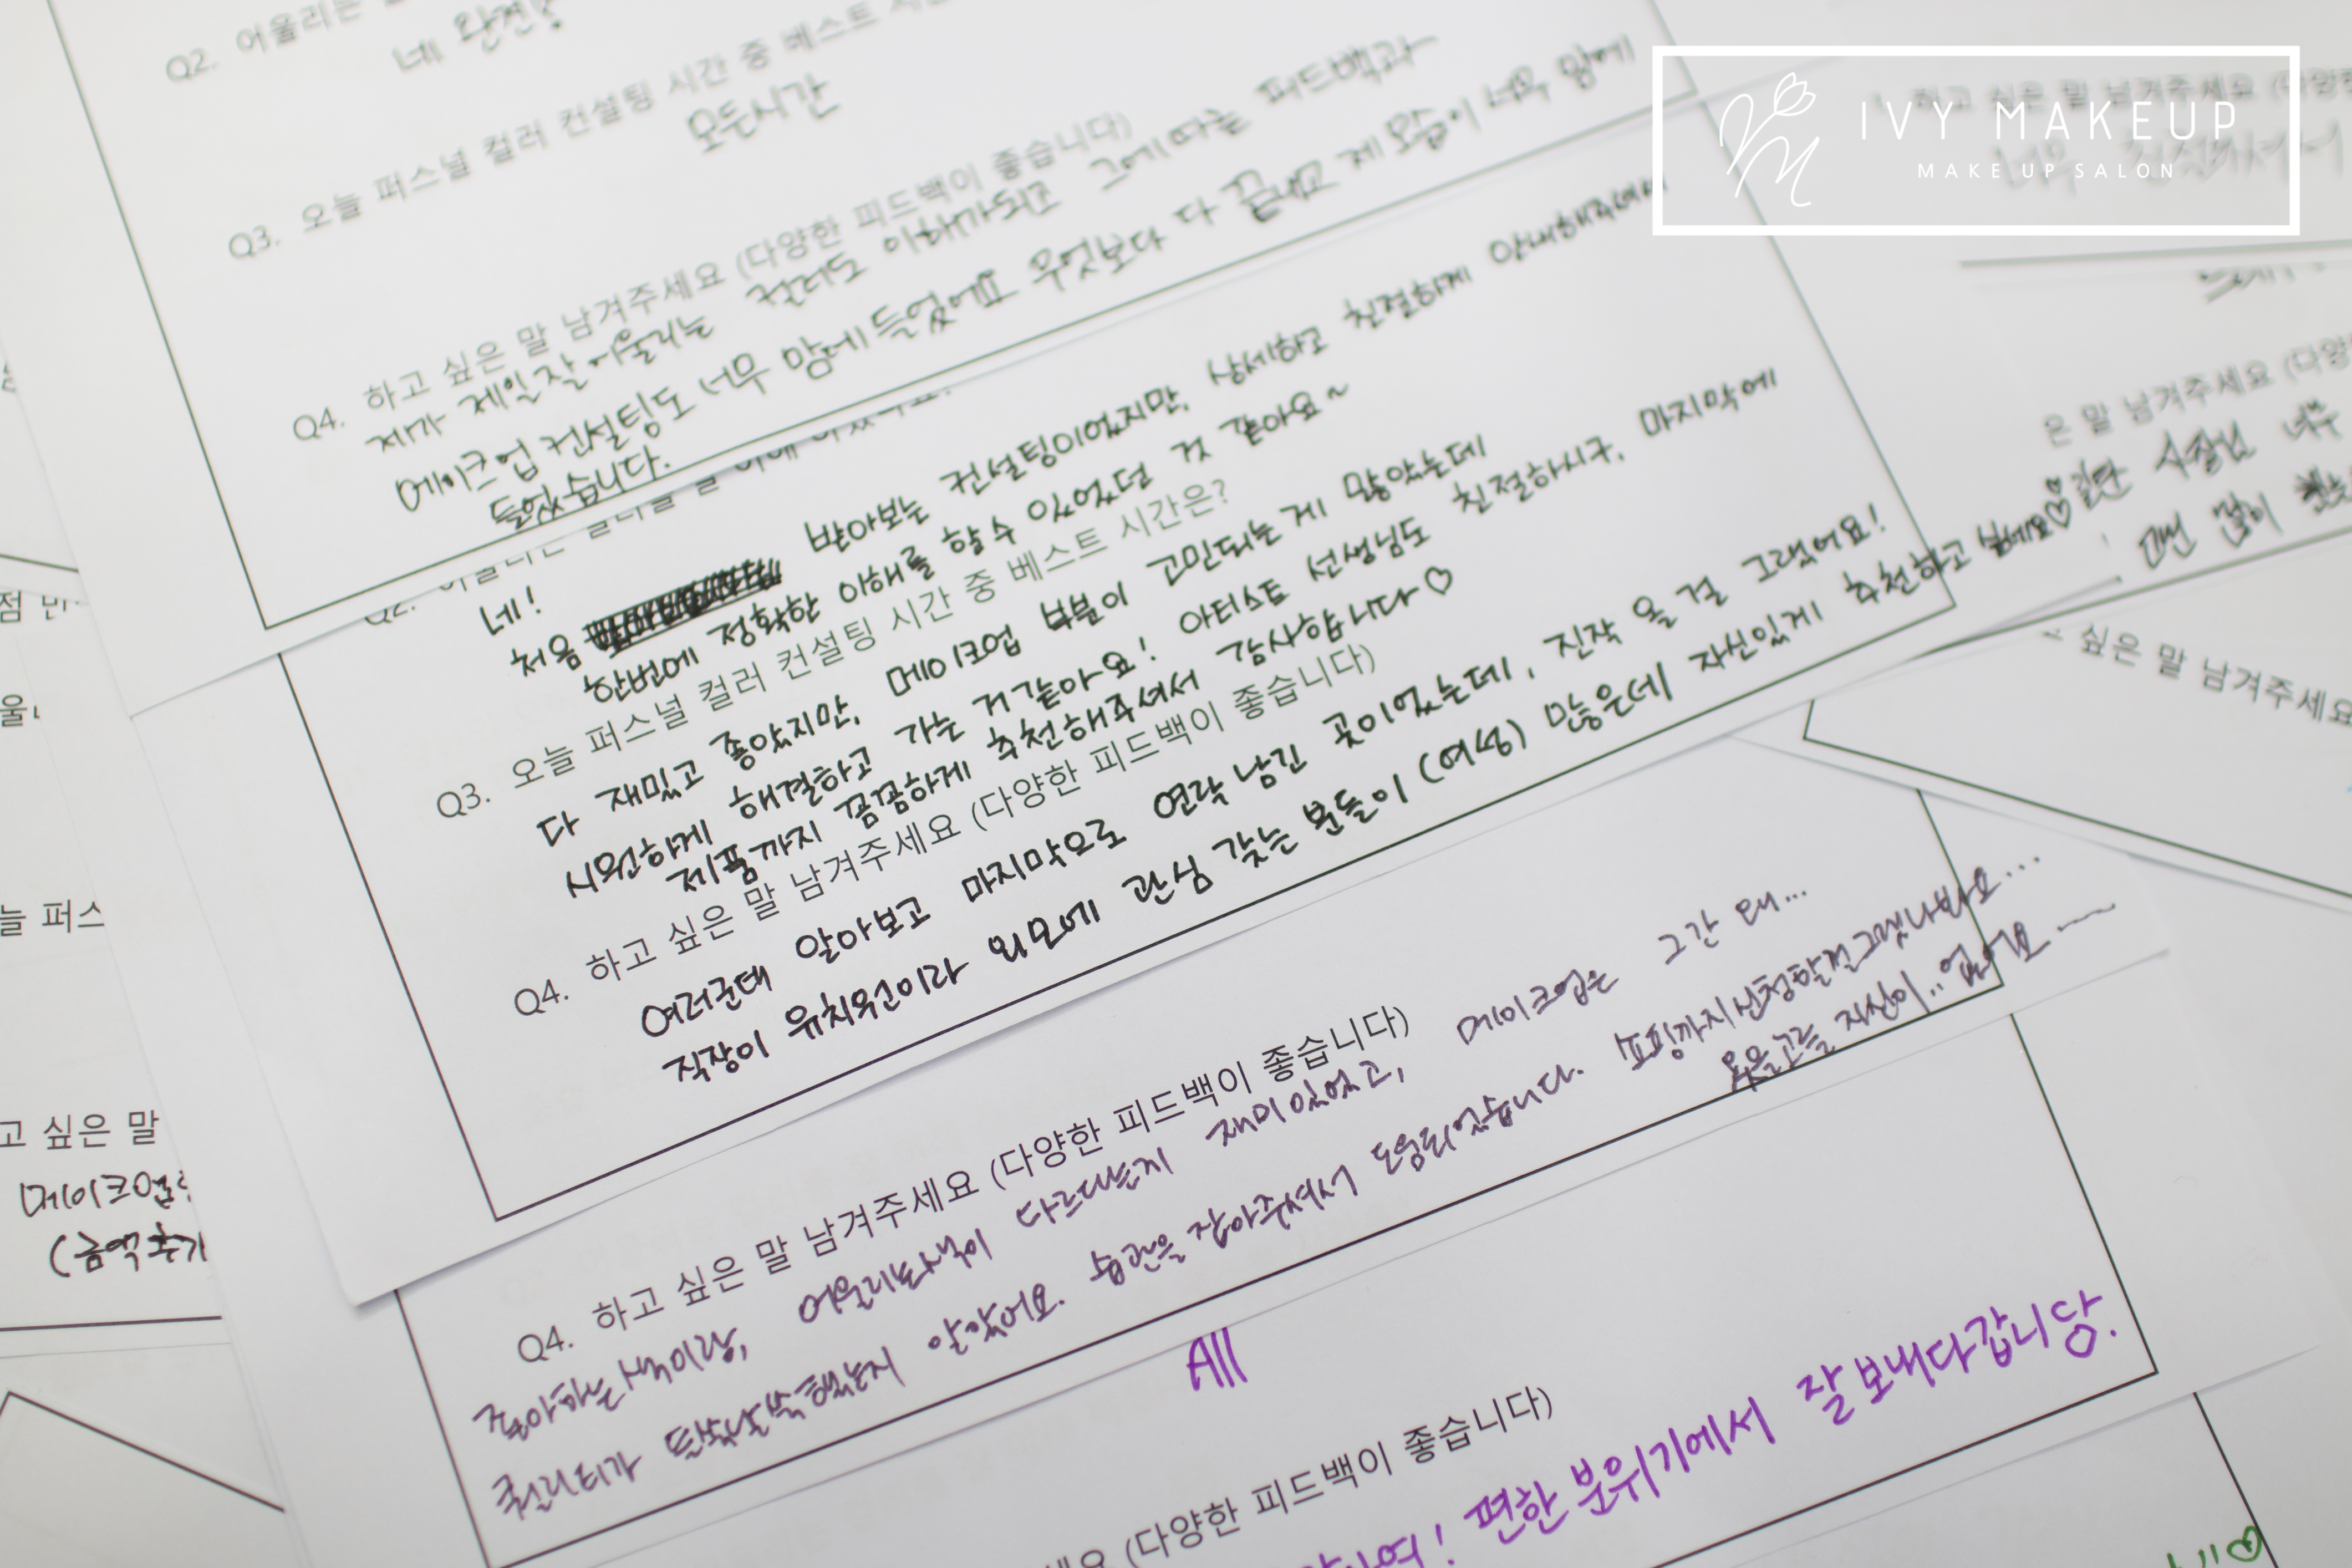 Q2. 어울리는
네 완전
Q3. 오늘 퍼스널 컬러 컨설팅 시간 중 베스트 시간
모든시간
Q4. 하고 싶은 말 남겨주세요 (다양한 피드백이 좋습니다)
제가 제일 잘 어울리는 컬러도 이해가되고 그에 따는 피드백과
메이크업 컨설팅도 너무 맘에 들었에요 무엇보다 다 끝내고 제 모습이 너무 맘에
들었습니다.
IVY MAKEUP
MAKE UP SALON
Q2.
네!
처음 받아보는 컨설팅이었지만, 상세하고 친절하게 안내해주셔서
한번에 정확한 이해를 할 수 있었던 것 같아요~
Q3. 오늘 퍼스널 컬러 컨설팅 시간 중 베스트 시간은?
다 재밌고 좋았지만, 메이크업 부분이 고민되는게 많았는데
시원하게 해결하고 가는 거같아요! 아티스트 선생님도 친절하시구, 마지막에
제품까지 꼼꼼하게 추천해주셔서 감사합니다♡
Q4. 하고 싶은 말 남겨주세요 (다양한 피드백이 좋습니다)
여러군데 알아보고 마지막으로 연락 남긴 곳이었는데, 진작 올 걸 그랬어요!
직장이 유치원이라 외모에 관심 갖는 분들이 (여성) 많은데 자신있게 추천하고
Q4. 하고 싶은 말 남겨주세요 (다양한 피드백이 좋습니다)
좋아하는색이랑, 어울리는색이 다르다는게 재미있었고, 메이크업은 그간 왜...
퀄리티가 들쑥날쑥했는지 알았어요. 습관을 잡아주셔서 도움되었습니다. 쇼핑까지신청할껄그랬나봐요...
고를 자신이.. 없어요~
All
세요 (다양한 피드백이 좋습니다)
편한 분위기에서 잘보내다갑니당.
은 말 남겨주세요 (다양
일단 사장님 너무
싶은 말 남겨주세요
늘 퍼스
고 싶은 말
메이크업
(금액추가